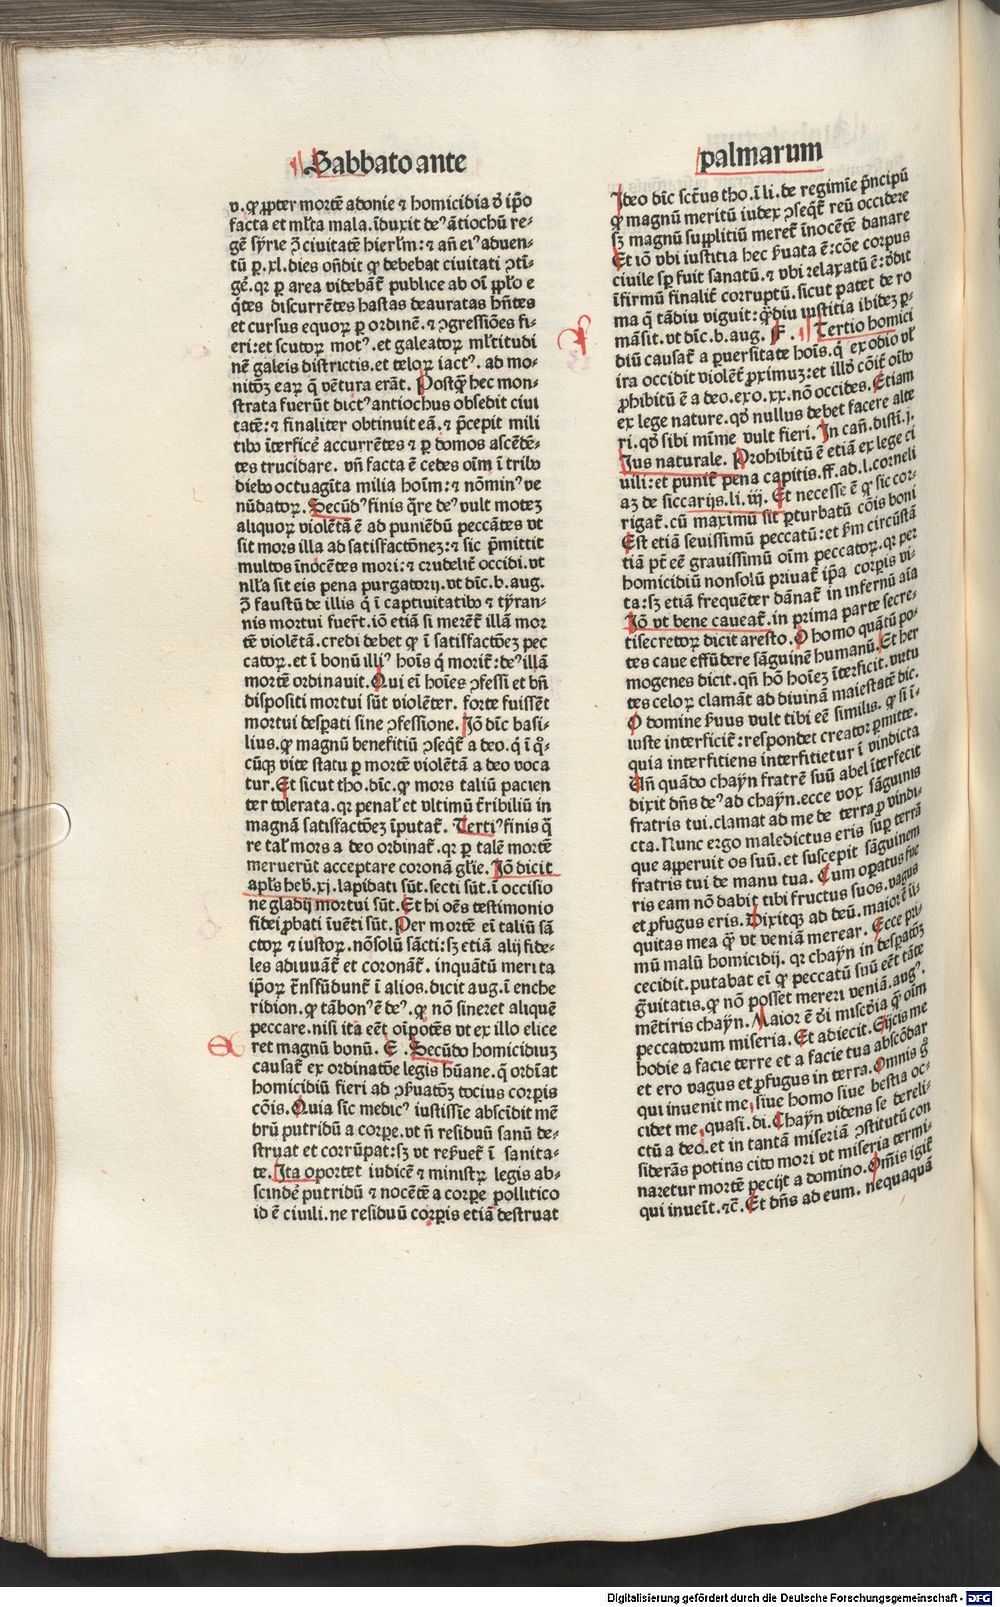 Sabbato ante
v. ꝙ ꝓpter mortē adonie ⁊ homicidia ꝺ̄ ip̄o
facta et ml̄ta mala. īduxit deꝰ ātiochū re-
gē syrie ↄ̄ ciuitatē hierl̄m: ⁊ añ eiꝰ aduen-
tū ꝑ .xl. dies oñdit ꝙ debebat ciuitati ↄtī-
gē. qꝛ ꝑ area videbāt᷑ publice ab oī ꝓpl̄o e
q̄tes discurrētes hastas deauratas hñtes
et cursus equoꝝ ꝑ ordinē. ⁊ ↄgressiōes fi-
eri: et scutoꝝ motꝰ. et galeatoꝝ ml̄titudi
nē galeis districtis. et teloꝝ iactꝰ. ad mo-
nitōꝫ eaꝝ q̄ vētura erāt. Postq̄ hec mon-
strata fuerūt dictꝰ antiochus obsedit ciui
tatē: ⁊ finaliter obtinuit eā. ⁊ p̄cepit mili
tibꝰ īterficē accurrētes ⁊ ꝑ domos ascēdē-
tes trucidare. vñ facta ē cedes oīm ī tribꝰ
diebꝰ octuagīta milia hoīm: ⁊ nō minꝰ ve
nūdatoꝝ. Secūdꝰ finis q̄re deꝰ vult moteꝫ
aliquoꝝ violētā ē ad puniēdū peccātes vt
sit mors illa ad satisfactōneꝫ: ⁊ sic ꝑmittit
multos īnocētes mori: ⁊ crudelit᷑ occidi. vt
nll̄a sit eis pena purgatorij. vt dic̄. b. aug.
ↄ̄ faustū de illis q̄ ī captiuitatibꝰ ⁊ tyran-
nis mortui fuer̄t. iō etiā si merēt᷑ illā mor
tē violētā. credi debet ꝙ ī satisfactōeꝫ pec
catoꝝ. et ī bonū illiꝰ hoīs q̄ morit᷑: deꝰ illā
mortē ordinauit. Qui eī hoīes ↄfessi et bñ
dispositi mortui sūt violēter. forte fuissēt
mortui desꝑati sine ↄfessione. Iō dic̄ basi-
lius. ꝙ magnū benefitiū ↄseq̄t᷑ a deo. q̄ ī qͦ-
cūqꝫ vite statu ꝑ mortē violētā a deo voca
tur. Et sicut tho. dic̄. ꝙ mors taliū pacien
ter tolerata. qꝛ penal᷑ et vltimū t̄ribiliū in
magnā satisfactōeꝫ īputat᷑. Tertiꝰ finis q̄
re tal᷑ mors a deo ordinat᷑. qꝛ ꝑ talē mortē
meruerūt acceptare coronā gl̄ie. Iō dicit
apl̄s heb. xj. lapidati sūt. secti sūt. ī occisio
ne gladij mortui sūt. Et hi oēs testimonio
fidei ꝓbati īuēti sūt. Per mortē eī taliū sā
ctoꝝ ⁊ iustoꝝ. nōsolū sācti: sꝫ etiā alij fide-
les adiuuāt᷑ et coronāt᷑. inquātū merita
ip̄oꝝ t̄nsfūdunt᷑ ī alios. dicit aug. ī enche
ridion. ꝙ tā bonꝰ ē deꝰ. ꝙ nō sineret aliquē
peccare. nisi ita eēt oīpotēs vt ex illo elice
ret magnū bonū. E . Secūdo homicidiuꝫ
causat᷑ ex ordinatōe legis hūane. q̄ ordīat
homicidiū fieri ad ↄẜuatōꝫ tocius corꝑis
cōis. Quia sic̄ medicꝰ iustissīe abscīdit mē
brū putridū a corꝑe. vt ñ residuū sanū de-
struat et corrūpat: sꝫ vt reẜuet᷑ ī sanita-
te. Ita oportet iudicē ⁊ ministꝝ legis ab-
scinde᷑ putridū ⁊ nocētē a corꝑe pollitico
id ē ciuili. ne residuū corꝑis etiā destruat
palmarum
Ideo dic̄ sct̄us tho. ī li. de regimīe p̄ncipū
ꝙ magnū meritū iudex ↄseq̄t᷑ reū occidere
sꝫ magnū supplitiū meret᷑ īnocētē dānare
Et iō vbi iustitia hec ẜuata ē: cōe corpus
ciuile sꝑ fuit sanatū. ⁊ vbi relaxatū ē: ꝺ̄dit
īfirmū finalit᷑ corruptū. sicut patet de ro
ma q̄ tādiu viguit: qͣ̄diu iustitia ibideꝫ ꝑ-
māsit. vt dic̄. b. aug. F . Tertio homici
diū causat᷑ a ꝑuersitate hoīs. q̄ ex odio vl᷑
ira occidit violēt᷑ ꝓximuꝫ: et illꝰ cōit᷑ oībꝰ
ꝓhibitū ē a deo. exo. xx. nō occides. Etiam
ex lege nature. qꝰ nullus debet facere alte
ri. qꝰ sibi mīme vult fieri. In cañ. disti. j.
Ius naturale. Prohibitū ē etiā ex lege ci
uili: et punit᷑ pena capitis. ff. ad. l. corneli
aꝫ de siccarijs. li. iij. Et necesse ē ꝙ sic cor-
rigat᷑. cū maximū sit ꝑturbatū cōis boni
Est etiā seuissimū peccatū: et ẜm circūstā
tiā pt̄ eē grauissimū oīm peccatoꝝ. qꝛ per
homicidiū nonsolū priuat᷑ ip̄a corꝑis vi-
ta: sꝫ etiā frequēter dānat᷑ in infernū aīa
Iō vt bene caueat᷑. in prima parte secre-
tisecretoꝝ dicit aresto. O homo quātū po-
tes caue effūdere sāguinē humanū. Et her
mogenes dicit. qñ hō hoīeꝫ īterficit. virtu
tes celoꝝ clamāt ad diuinā maiestatē dic.
O domine ẜuus vult tibi eē similis. ꝙ si ī-
iuste interficit᷑: respondet creator ꝑmitte.
quia interfitiens interfitietur ī vindicta
Vñ quādo chayn fratrē suū abel īterfecit
dixit dñs deꝰ ad chayn. ecce vox sāguinis
fratris tui. clamat ad me de terra ꝓ vindi-
cta. Nunc ergo maledictus eris suꝑ terrā
que apꝑeruit os suū. et suscepit sāguinem
fratris tui de manu tua. Cum oꝑatus fue
ris eam nō dabit tibi fructus suos. vagus
et ꝓfugus eris. Dixitqꝫ ad deū. maior ē ī-
quitas mea qͣ̄ vt veniā merear. Ecce pri-
mū malū homicidij. qꝛ chayn in desꝑatōꝫ
cecidit. putabat eī ꝙ peccatū suū eēt tāte
gͣuitatis. ꝙ nō posset mereri veniā. augꝰ.
mētiris chayn. Maior ē ꝺ̄i misc̄dia qͣ̄ oīm
peccatorum miseria. Et adiecit. Eijcis me
hodie a facie terre et a facie tua abscōbar
et ero vagus et ꝓfugus in terra. Omnis gͦ
qui inuenit me, siue homo siue bestia oc-
cidet me, quasi. di. Chayn videns se dereli-
ctū a deo. et in tantā miseriā ↄstitutū con
siderās potius cito mori vt miseria termi-
naretur mortē pecijt a domino. Om̄is igit᷑
qui inueīt. ⁊c̄. Et dñs ad eum. nequaquā
Digitalisierung gefördert durch die Deutsche Forschungsgemeinschaft - DFG